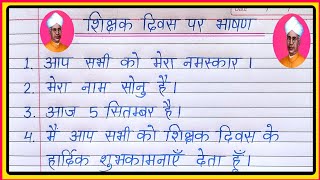 शिक्षक दिवस पर भाषण
1. आप सभी को मेरा नमस्कार ।
2. मेरा नाम सोनु है ।
3. आज 5 सितम्बर है ।
4. मैं आप सभी को शिक्षक दिवस के
हार्दिक शुभकामनाएँ देता हूँ ।